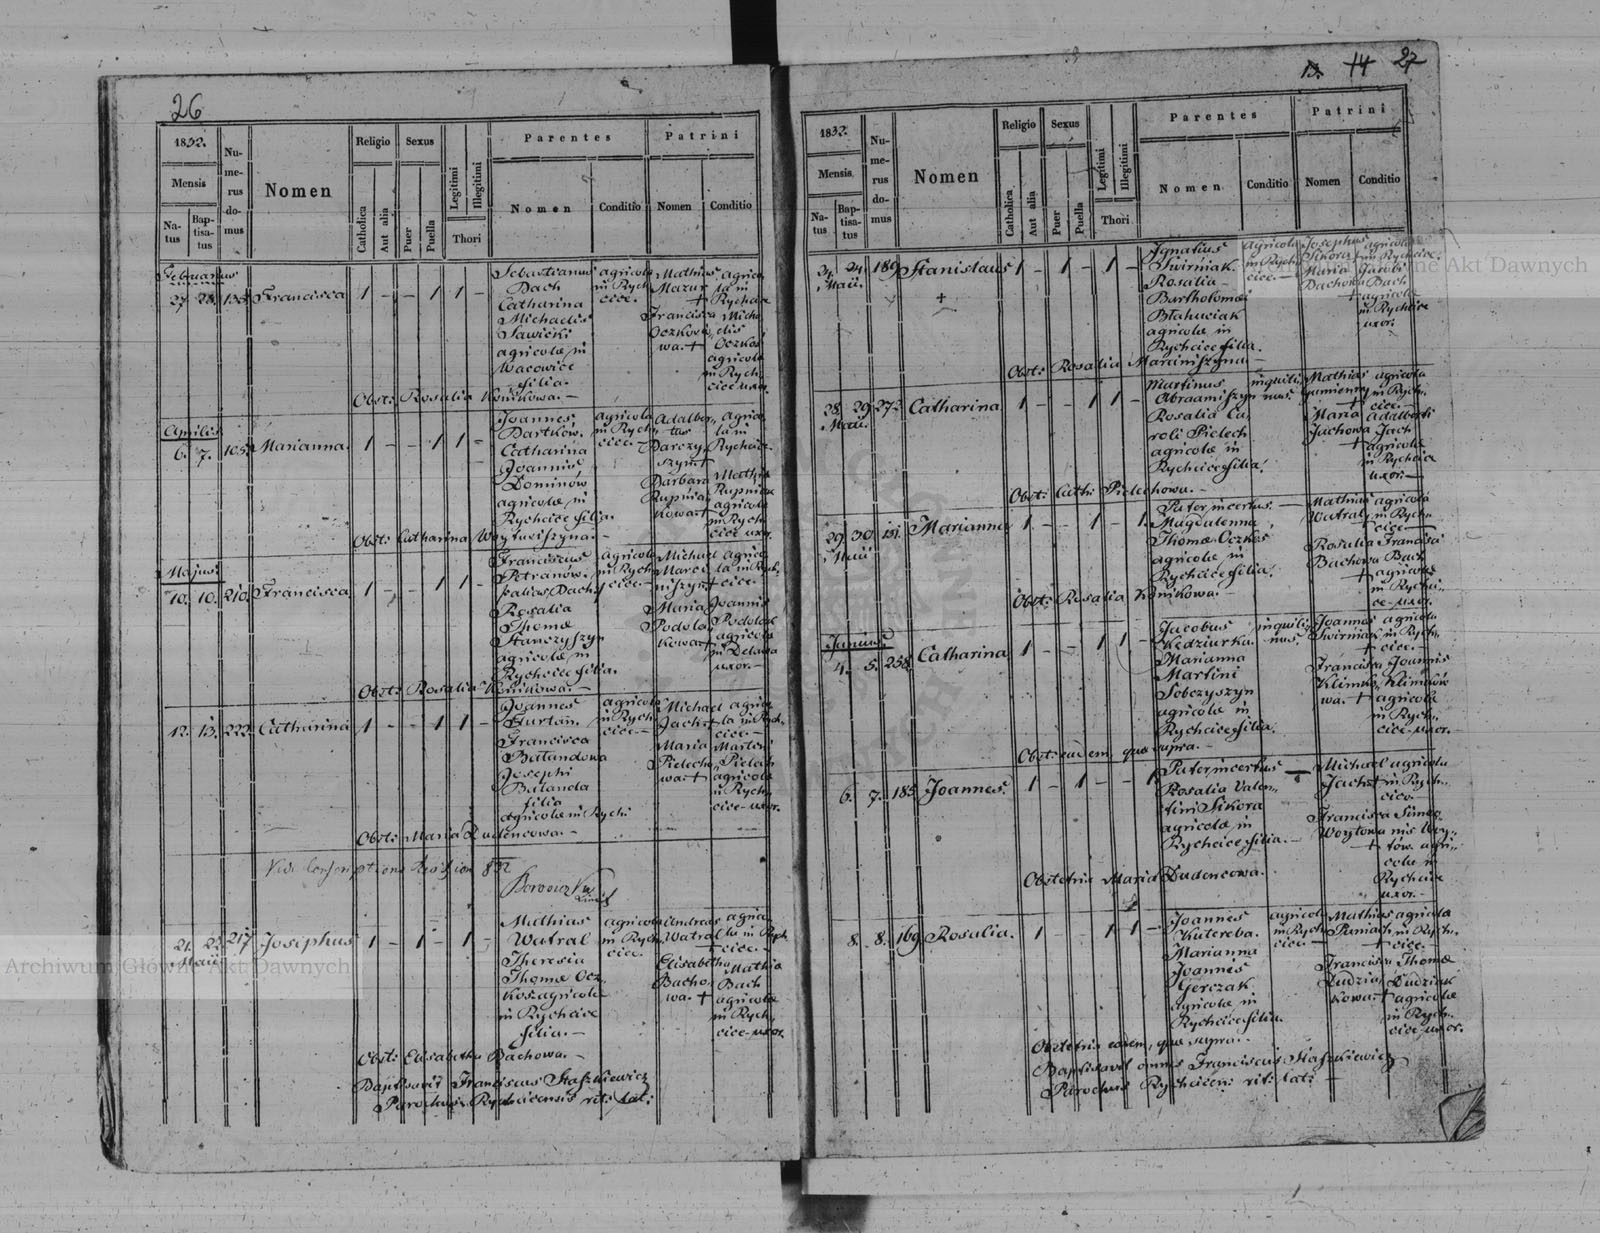 26
1832.
Mensis
Na-
tus
Bap-
tisa-
tus
Nu-
me-
rus
do-
mus
Nomen
Religio
Catholica
Aut alia
Sexus
Puer
Puella
Legitimi
Illegitimi
Thori
Parentes
Nomen
Conditio
Patrini
Nomen
Conditio
Februarius
27. 28. 135. Francisca 1 - - 1 1 -
Sebastianus
Bach
Catharina
Michaelis
Sawicki
agricolae in
Wacowice
filia.
agricola
in Rych
cice.
Mathias
Mazur
+
Francisca
Oczkow
wa. +
agrico
la in
Rychcice
Micha
elis
Oczkoś
agricolae
in Rych
cice uxor.
Obst: Rosalia Konikowa. -
Aprilis
6. 7. 105. Marianna. 1 - - 1 1 -
Joannes
Bartków.
Catharina
Joannis
Dominów
agricolae in
Rychcice filia.
agricola
in Rych
cice. -
Adalber
tus
Barczy
szyn +
Barbara
Rupnia
kowa. +
agrico
la in
Rychcice
Mathia
Rupniak
agricolae
in Rych
cice uxor.
Obst: Catharina Woytwiszyna. -
Majus
10. 10. 210. Francisca 1 - - 1 1 -
Franciscus
Petranów.
alias Bach
Rosalia
Thomae
Stanczyszyn
agricolae in
Rychcice filia.
agricola
in Rych
cice. -
Michael
Marci
niszyn +
Maria
Podola
kowa. +
agrico
la in Rych
cice. -
Joannis
Podolak
agricolae
in Delawa
uxor. -
Obst: Rosalia Konikowa. -
12. 13. 222. Catharina 1 - - 1 1 -
Joannes
Burtan.
Francisca
Balandowa
Josephi
Balanda
filia
agricolae in Rych:
agricola
in Rych
cice -
Michael
Jach +
Maria
Pielecho
wa +
agrico
la in Rych
cice. -
Martini
Pielech
agricolae
in Rych
cice - uxor.
Obst: Maria Dudencowa. -
21. 22. 217. Josephus 1 - 1 - 1 -
Maii
Mathias
Watral
Theresia
Thomae Ocz
kos agricolae
in Rychcice
filia. -
agricola
in Rych
cice.
Andreas
Watral
+
Elisabetha
Bacho
wa. +
agrico
la in Rych
cice. -
Mathia
Bach
agricolae
in Rych
cice - uxor.
Obst: Elisabetha Bachowa. -
Baptisavit Franciscus Staszkiewicz
Parochus Rychcicensis rit: lat:
13. 14 27
1832.
Mensis
Na-
tus
Bap-
tisa-
tus
Nu-
me-
rus
do-
mus
Nomen
Religio
Catholica
Aut alia
Sexus
Puer
Puella
Legitimi
Illegitimi
Thori
Parentes
Nomen
Conditio
Patrini
Nomen
Conditio
24. 24. 189. Stanislaus 1 - 1 - 1 -
Maii. +
Ignatius
Swirniak.
Rosalia
Bartholomaei
Błahuciak
agricolae in
Rychcice filia.
agricola
in Rych
cice. -
Josephus
Sikora
Maria
Bachowa
+
agricola
in Rychcice.
Jacobi
Bach
agricolae
in Rychcice
uxor.
Obst: Rosalia Marciniszyna -
28. 29. 272. Catharina 1 - - 1 1 -
Maii.
Martinus
Abraamiszyn
Rosalia Ca,
roli Pielech
agricolae in
Rychcice filia.
inquili
nus.
Mathias
+
Maria
Jachowa
+
agricola
in Rych:
cice. -
Adalberti
Jach
agricolae
in Rychcice
uxor. -
Obst: Cath: Pielechowa. -
29. 30. 151. Marianna 1 - - 1 - 1
Maii
Pater incertus. -
Magdalenna
Thomae Oczkos
agricolae in
Rychcice filia.
Mathias
Watral
+
Rosalia
Bachowa
+
agricola
in Rych:
cice
Francisci
Bach
agricolae
in Rychci
ce - uxor.
Obst: Rosalia Konikowa. -
Junius.
4. 5. 258. Catharina 1 - - 1 1 -
Jacobus
Kędziurka.
Marianna
Martini
Sobczyszyn
agricolae in
Rychcice filia.
inquili
nus.
Joannes
Swirniak
+
Francisca
Klimko
wa. +
agricola
in Rych:
cice. -
Joannis
Klimków
agricolae
in Rych:
cice - uxor.
Obst: eadem, quae supra. -
6. 7. 185. Joannes. 1 - 1 - - 1
Pater incertus -
Rosalia Valen
tini Sikora
agricolae in
Rychcice filia. -
Michael
Jach +
Francisca
Woytowa
+
agricola
in Rych:
cice.
Simeo
nis Woy
tów. agri
colae in
Rychcice
uxor. -
Obstetrix Maria Dudencowa.
8. 8. 169. Rosalia. 1 - - 1 1 -
Joannes
Kutereba.
Marianna
Joannis
Gerczak
agricolae in
Rychcice filia.
agricola
in Rych
cice. -
Mathias
Paniach
+
Francisca
Dudzia
kowa. +
agricola
in Rych:
cice. -
Thomae
Dudziak
agricolae
in Rych:
cice uxor.
Obstetrix eadem, quae supra. -
Baptisavit omnes Franciscus Staszkiewicz
Parochus Rychcicen: rit: lat: -
Archiwum Główne Akt Dawnych
Akt Dawnych